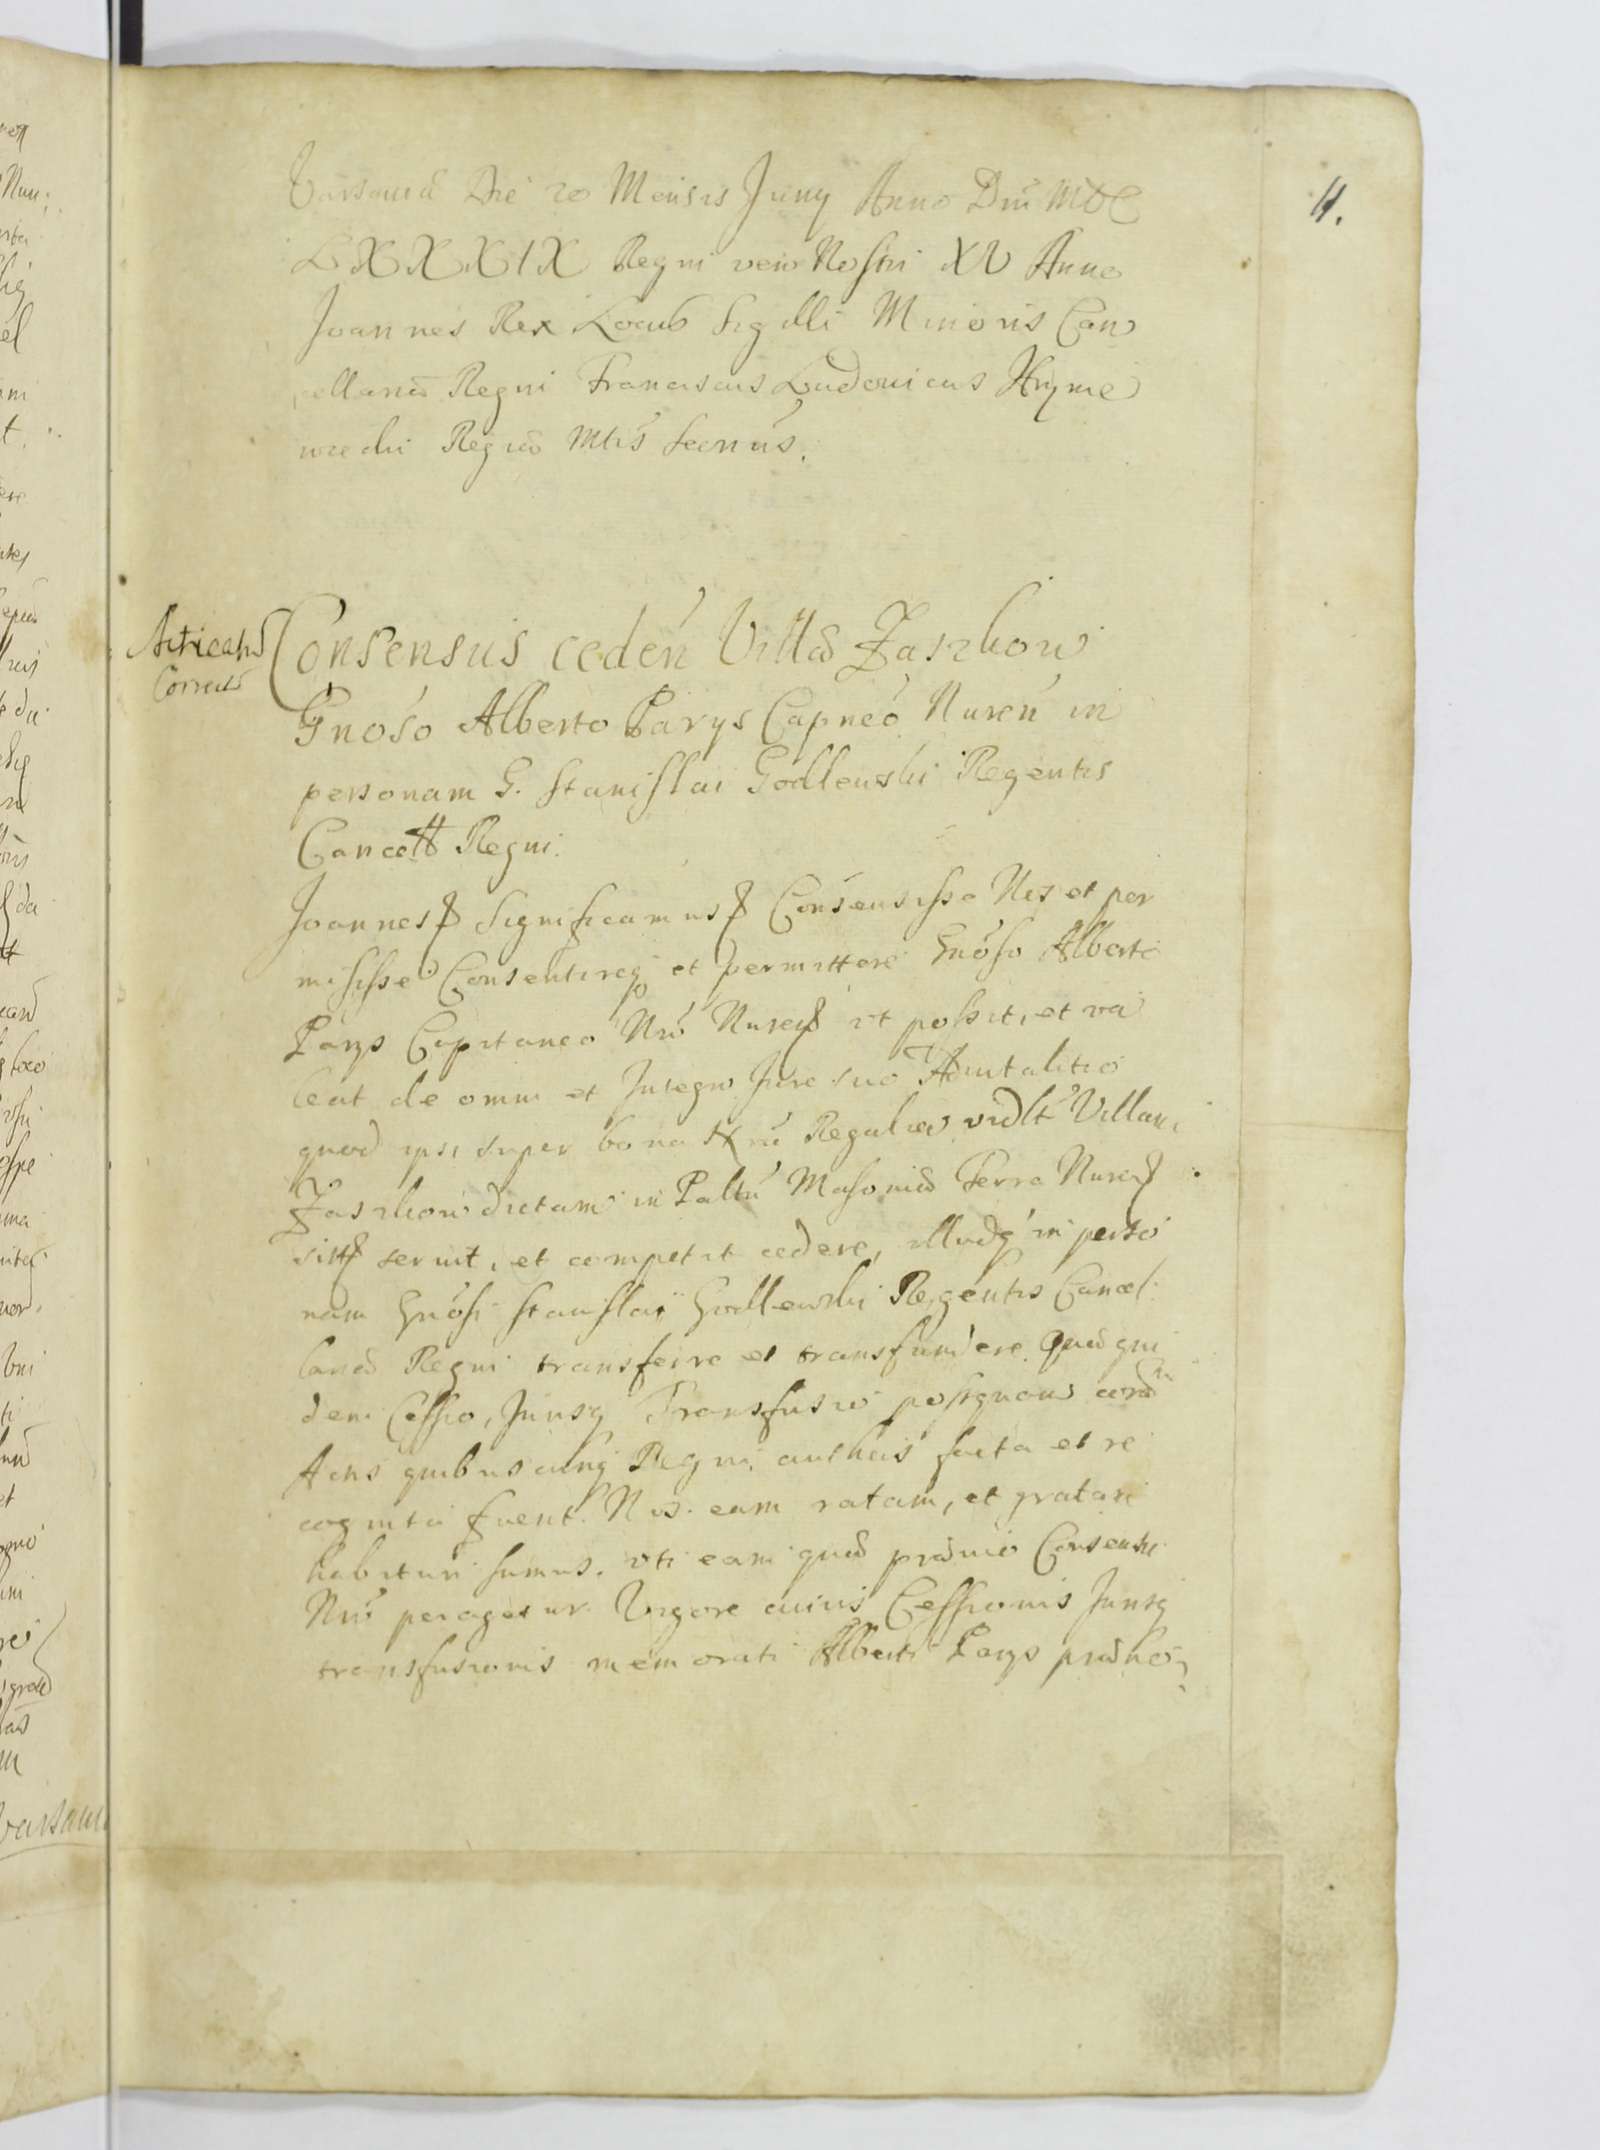 11.
Varsaviæ Die 20 Mensis Juny Anno Dni MDC
LXXXIX Regni vero Nostri XV Anno
Joannes Rex Locus Sigilli Minoris Can
cellariæ Regni Franciscus Ludovicus
Regiæ Mtis Secrius.
Acticatus
Correcta
Consensus cedén Villæ Zaszkow
Gnoso Alberto Parys Capneo Nurén in
personam G. Stanislai Godlewski Regentis
Cancell Regni.
Joannes Significamus Consensisse Nos et per
misisse Consentireq et permittere Gnoso Alberto
Parys Capitaneo Nro Nuren ut possit, et va
leat de omni et Integro Jure suo Aduitalitio
quod ipsi super bona Nra Regalia vidlt Villam
Zaszkow dictam in Paltu Masoviæ Terra Nuren
sitt servit, et competit cedere, illudq in perso
nam Gnosi Stanislai Godlewski Regentis Cancel
lariæ Regni transferre et transfundere. Quæ qui
dem Cessio, Jurisq Transfusio postquam coram
Actis quibuscunq Regni authcis facta et re
cognita fuerit. Nos eam ratam, et gratam
habituri sumus. uti eam quæ prævio Consensu
Nro peragetur. Vigore cuius Cessionis Jurisq
transfusionis memorati Alberti Parys